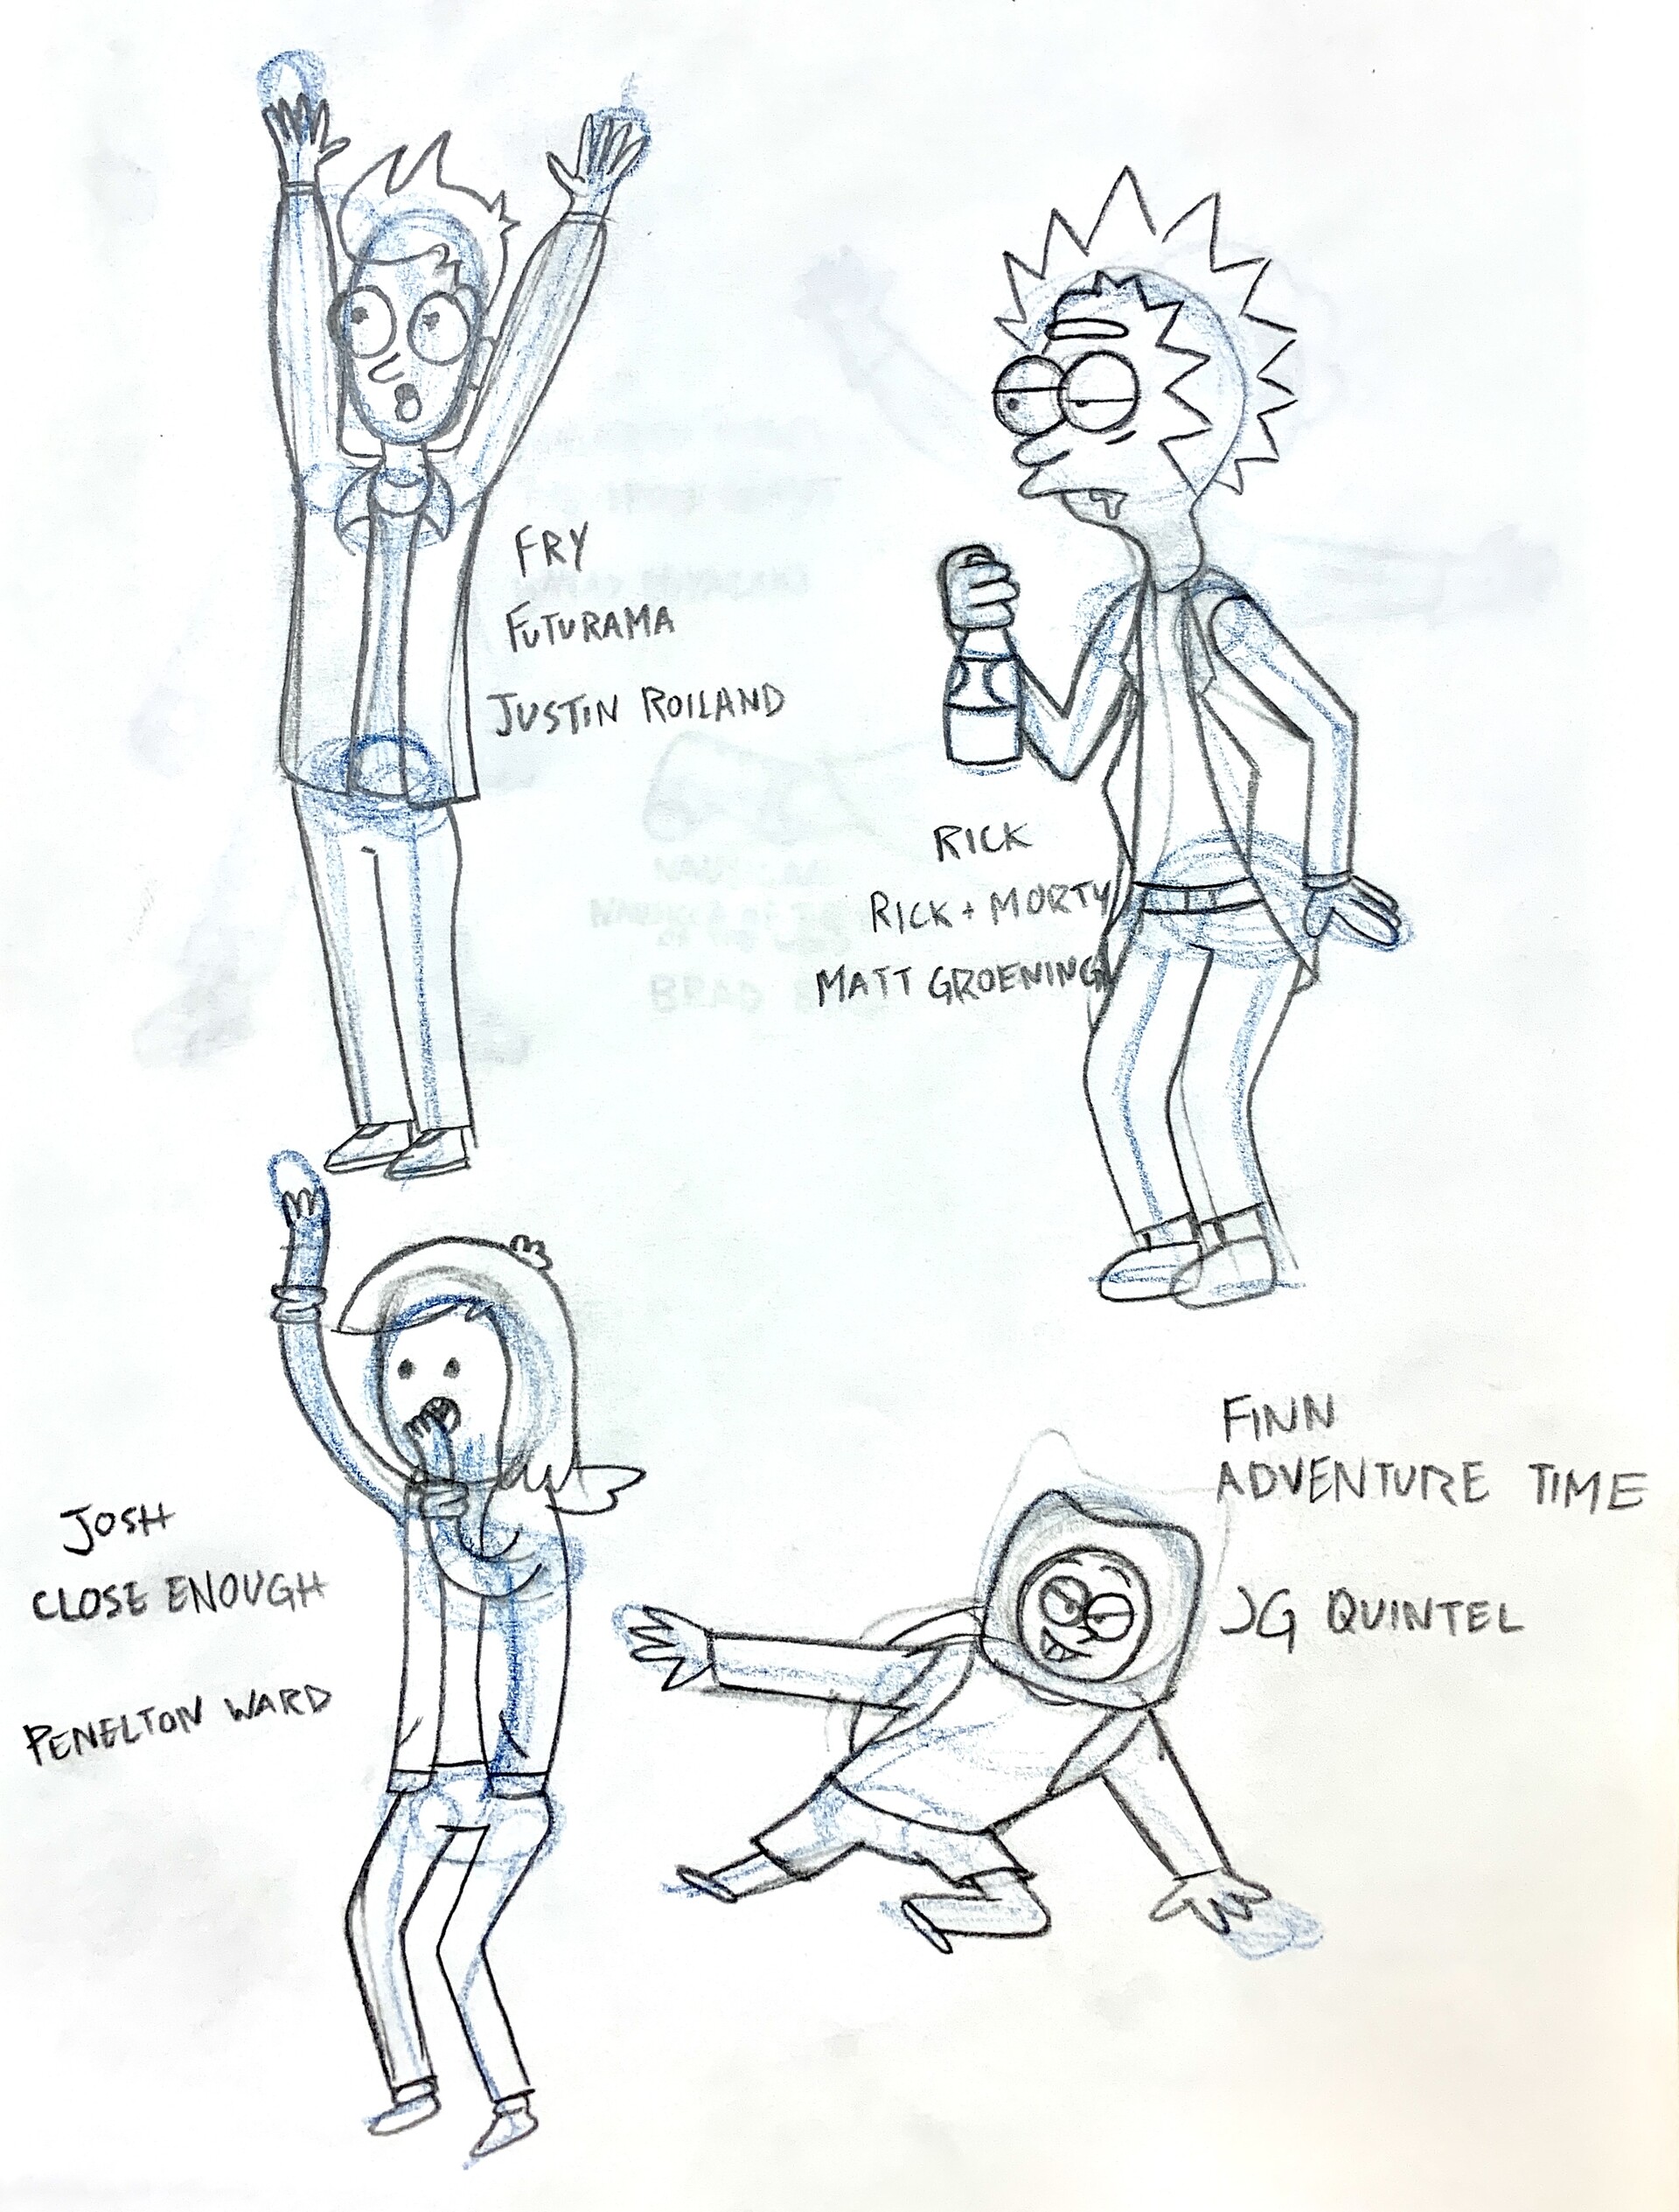 FRY
FUTURAMA
JUSTIN ROILAND
RICK
RICK + MORTY
MATT GROENING
JOSH
CLOSE ENOUGH
PENELTON WARD
FINN
ADVENTURE TIME
JG QUINTEL